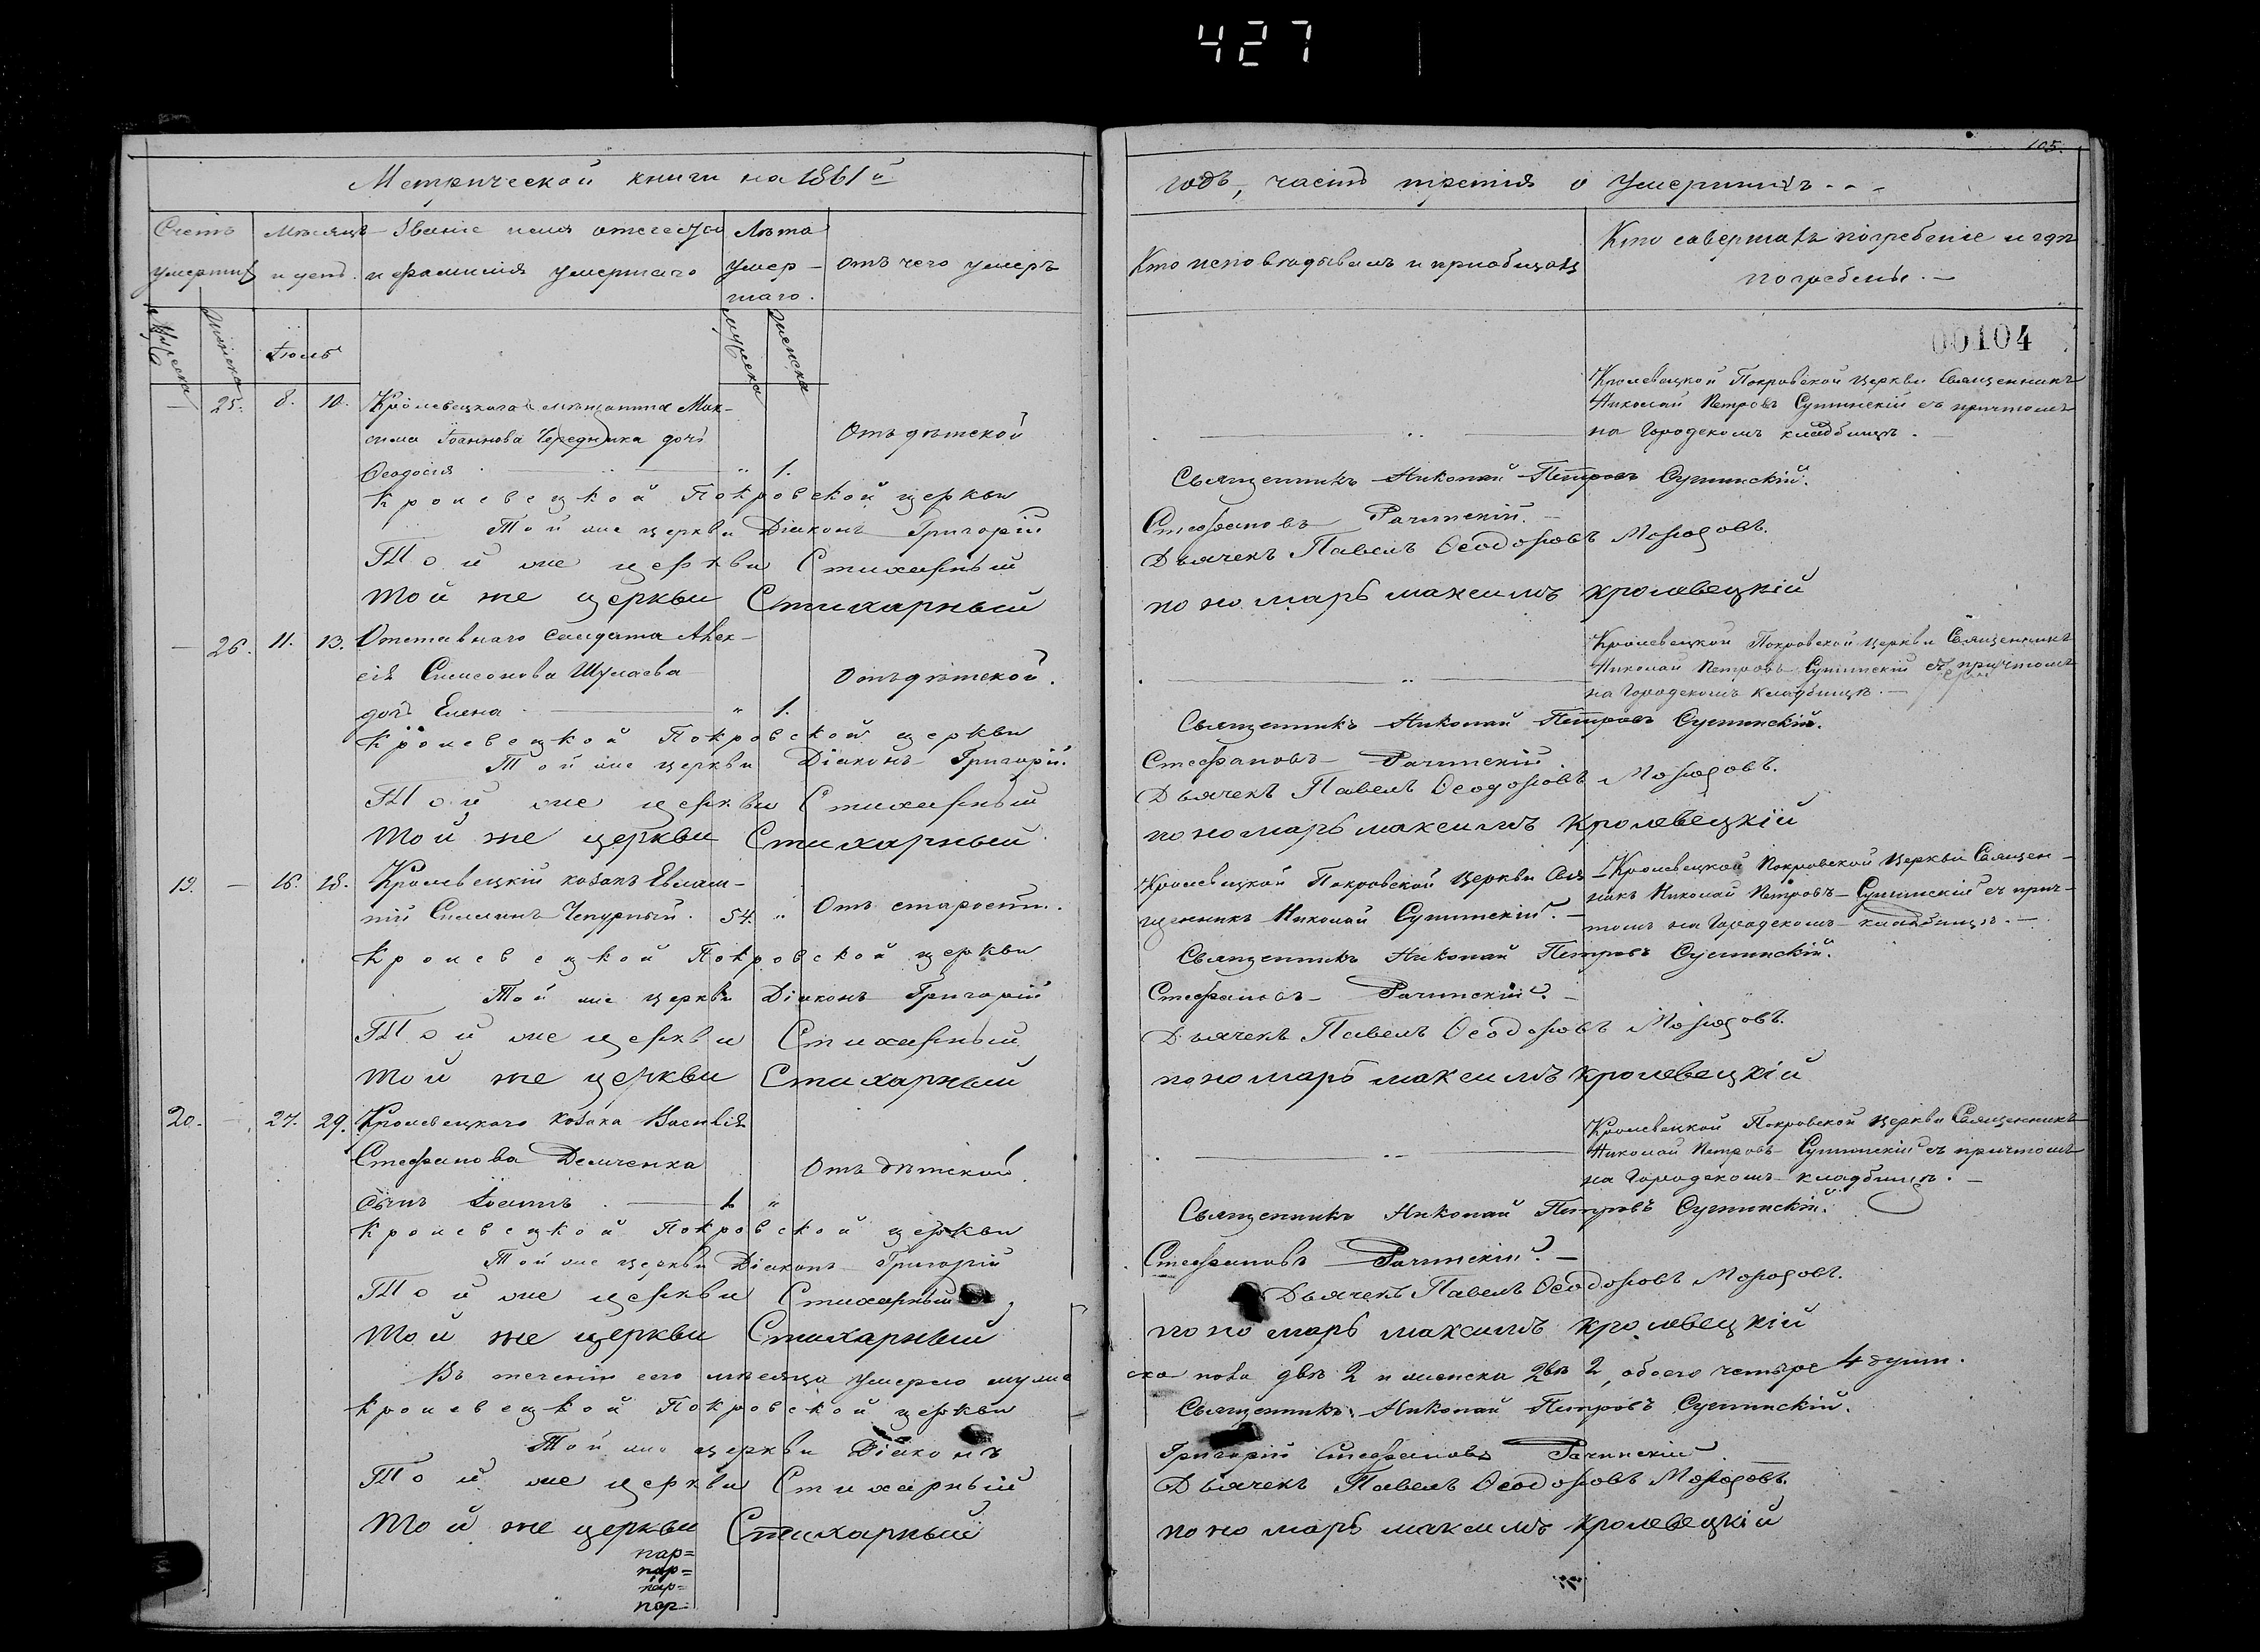 427
105.
Метрической книги на 1861й
годъ, часть третія о умершихъ
Счетъ умершихъ
Мѣсяцъ и день.
Званіе имя отечество и фамилія умершаго
Лѣта умер-
шаго.
отъ чего умеръ
Кто исповѣдывалъ и пріобщалъ
Кто совершалъ погребеніе и гдѣ
погребены.
Мужеска
Женска
Іюль
мужеска
женска
00104
25. 8. 10. Кролевецкаго мѣщанина Мак-
сима Іоаннова Чередника дочь
Ѳеодосія 1.
Отъ дѣтской
Кролевецкой Покровской церкви Священникъ
Николай Петровъ Сулинскій съ причтомъ
на Городскомъ кладбищѣ.
Кролевецкой Покровской церкви Священникъ Николай Петровъ
Той же церкви Діаконъ Григорій Стефановъ Рачинскій.
Той же церкви Стихарный Дьячекъ Павелъ Ѳеодоровъ
той же церкви Стихарный пономарь максимъ кролевецкій
26. 11. 13. Отставнаго солдата Алек-
сія Симеонова
дочь Елена 1.
Отъ дѣтской.
Кролевецкой Покровской церкви Священникъ
Николай Петровъ съ причтомъ
на Городскомъ кладбищѣ.
Кролевецкой Покровской церкви Священникъ Николай Петровъ
Той же церкви Діаконъ Григорій. Стефановъ Рачинскій
Той же церкви Стихарный Дьячекъ Павелъ Ѳеодоровъ
той же церкви Стихарный пономарь максимъ кролевецкій
19. 16. 18. Кролевецкій козакъ Евлам-
пій Чепурный. 54. "
Отъ старости.
Кролевецкой Покровской Церкви Свя-
щенникъ Николай
Кролевецкой Покровской Церкви Священ-
никъ Николай Петровъ съ прич-
томъ на Городскомъ кладбищѣ.
Кролевецкой Покровской церкви Священникъ Николай Петровъ
Той же церкви Діаконъ Григорій Стефановъ Рачинскій.
Той же церкви Стихарный Дьячекъ Павелъ Ѳеодоровъ
той же церкви Стихарный пономарь максимъ кролевецкій
20. 27. 29. Кролевецкаго козака Василія
Стефанова Демченка
сынъ Іоаннъ 1. "
Отъ дѣтской.
Кролевецкой Покровской Церкви Священникъ
Николай Петровъ съ причтомъ
на Городскомъ кладбищѣ.
Кролевецкой Покровской церкви Священникъ Николай Петровъ
Той же церкви Діаконъ Григорій Стефановъ Рачинскій.
Той же церкви Стихарный Дьячекъ Павелъ Ѳеодоровъ
той же церкви Стихарный пономарь максимъ кролевецкій
Въ теченіи сего мѣсяца умерло муже
ска пола двѣ 2 и женска двѣ 2, обоего четыре 4 души.
Кролевецкой Покровской церкви Священникъ Николай Петровъ
Той же церкви Діаконъ Григорій Стефановъ Рачинскій
Той же церкви Стихарный Дьячекъ Павелъ Ѳеодоровъ
той же церкви Стихарный пономарь максимъ кролевецкій
пар=
пар=
пар=
пар=